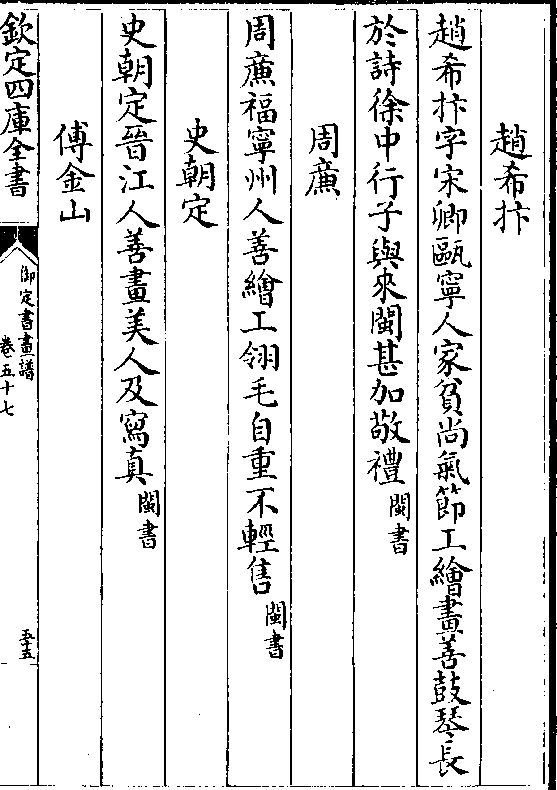 趙希抃
趙希抃字宋卿甌寧人家貧尚氣節工繪畫善鼓琴長
於詩徐中行子與來閩甚加敬禮閩書
周廉
周廉福寧州人善繪工翎毛自重不輕售閩書
史朝定
史朝定晉江人善畫美人及寫真閩書
傅金山
欽定四庫全書
御定書畫譜
卷五十七
五十五